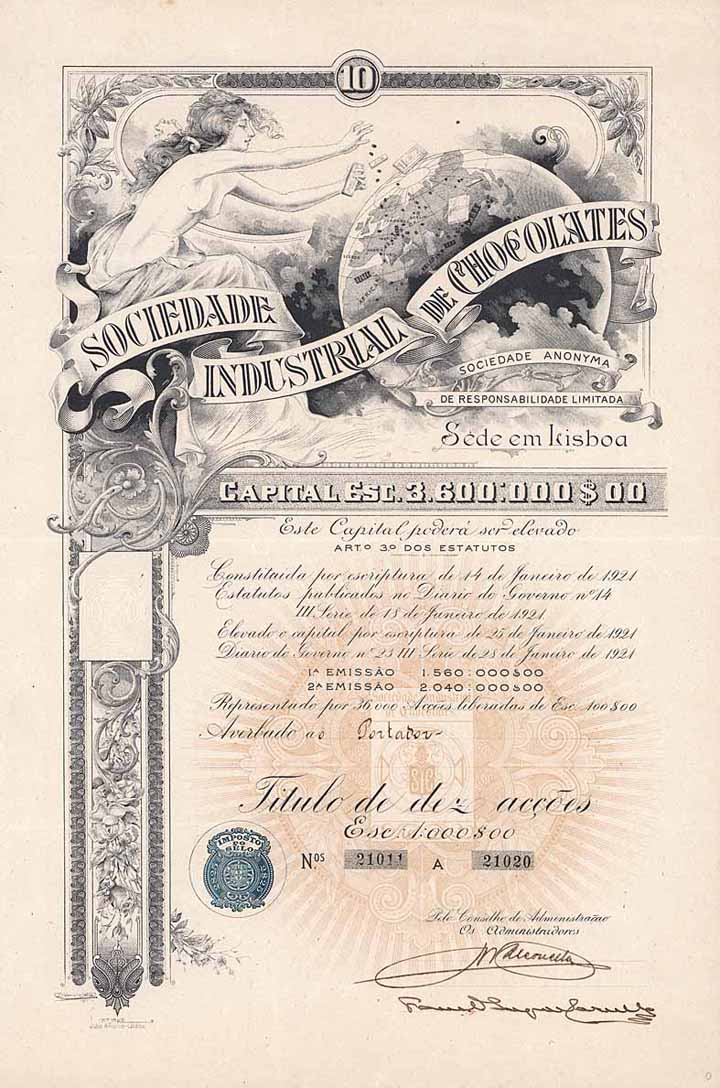 10
SOCIEDADE
INDUSTRIAL
DE CHOCOLATES
SOCIEDADE ANONYMA
DE RESPONSABILIDADE LIMITADA
Séde em Lisboa
CAPITAL ESC. 3.600:000$00
Este Capital poderá ser elevado
ARTº 3º DOS ESTATUTOS
Constituida por escriptura de 14 de Janeiro de 1921
Estatutos publicados no Diario do Governo nº 14
III Serie de 18 de Janeiro de 1921
Elevado o capital por escriptura de 25 de Janeiro de 1921
Diario do Governo nº 23 III Serie de 28 de Janeiro de 1921
1ª EMISSÃO 1.560:000$00
2ª EMISSÃO 2.040:000$00
Representado por 36.000 Acções liberadas de Esc. 100$00
Averbado ao Portador
Titulo de dez acções
Esc. 1:000$00
IMPOSTO
DO
SELO
Nos 21011 A 21020
Pelo Conselho de Administração
Os Administradores